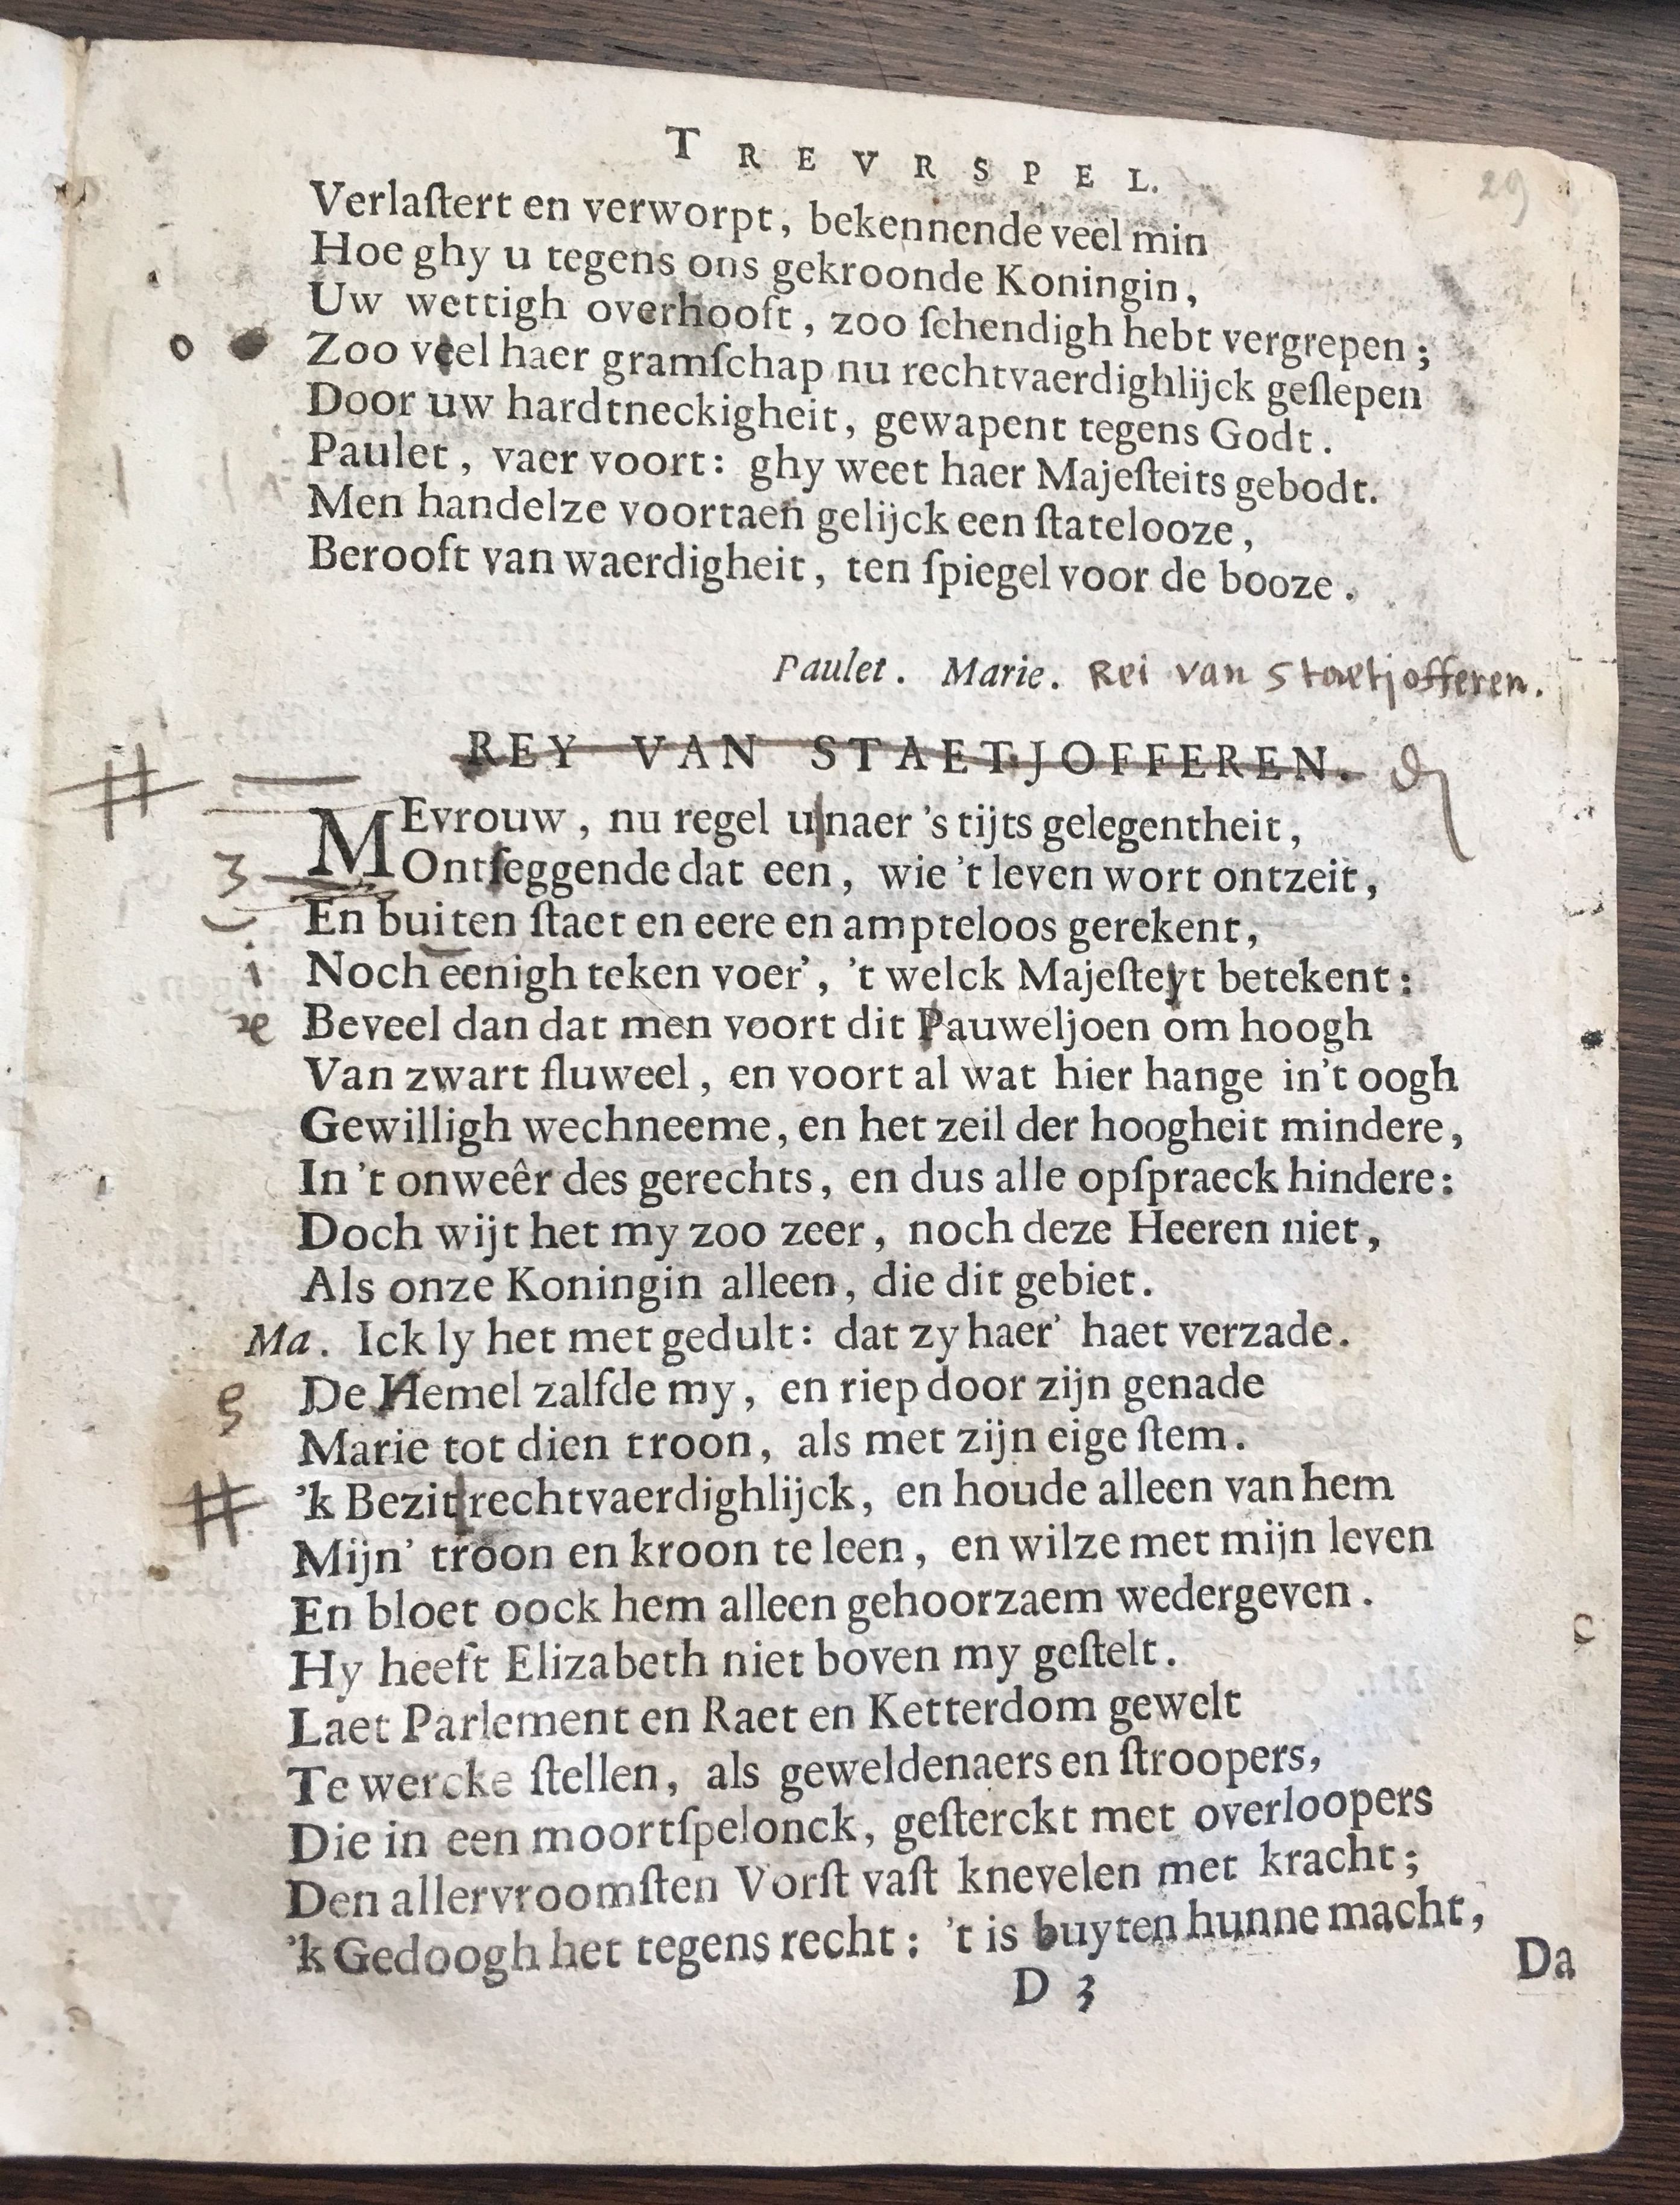 TREVRSPEL.
29
Verlaſtert en verworpt, bekennende veel min
Hoe ghy u tegens ons gekroonde Koningin,
Uw wettigh overhooft, zoo ſchendigh hebt vergrepen;
o Zoo veel haer gramſchap nu rechtvaerdighlijck geſlepen
Door uw hardtneckigheit, gewapent tegens Godt.
Paulet, vaer voort: ghy weet haer Majeſteits gebodt.
Men handelze voortaen gelijck een ſtatelooze,
Berooft van waerdigheit, ten ſpiegel voor de booze.
Paulet. Marie. Rei van Staetjofferen.
REY VAN STAETJOFFEREN.
MEvrouw, nu regel u naer 's tijts gelegentheit,
3 Ontſeggende dat een, wie 't leven wort ontzeit,
En buiten ſtaet en eere en ampteloos gerekent,
i Noch eenigh teken voer', 't welck Majeſteyt betekent:
Beveel dan dat men voort dit Pauweljoen om hoogh
Van zwart fluweel, en voort al wat hier hange in't oogh
Gewilligh wechneeme, en het zeil der hoogheit mindere,
In 't onweêr des gerechts, en dus alle opſpraeck hindere:
Doch wijt het my zoo zeer, noch deze Heeren niet,
Als onze Koningin alleen, die dit gebiet.
Ma. Ick ly het met gedult: dat zy haer' haet verzade.
De Hemel zalfde my, en riep door zijn genade
Marie tot dien troon, als met zijn eige ſtem.
# 'k Bezit rechtvaerdighlijck, en houde alleen van hem
Mijn' troon en kroon te leen, en wilze met mijn leven
En bloet oock hem alleen gehoorzaem wedergeven.
Hy heeft Elizabeth niet boven my geſtelt.
Laet Parlement en Raet en Ketterdom gewelt
Te wercke ſtellen, als geweldenaers en ſtroopers,
Die in een moortſpelonck, geſterckt met overloopers
Den allervroomſten Vorſt vaſt knevelen met kracht;
'k Gedoogh het tegens recht: 't is buyten hunne macht,
D 3
Da